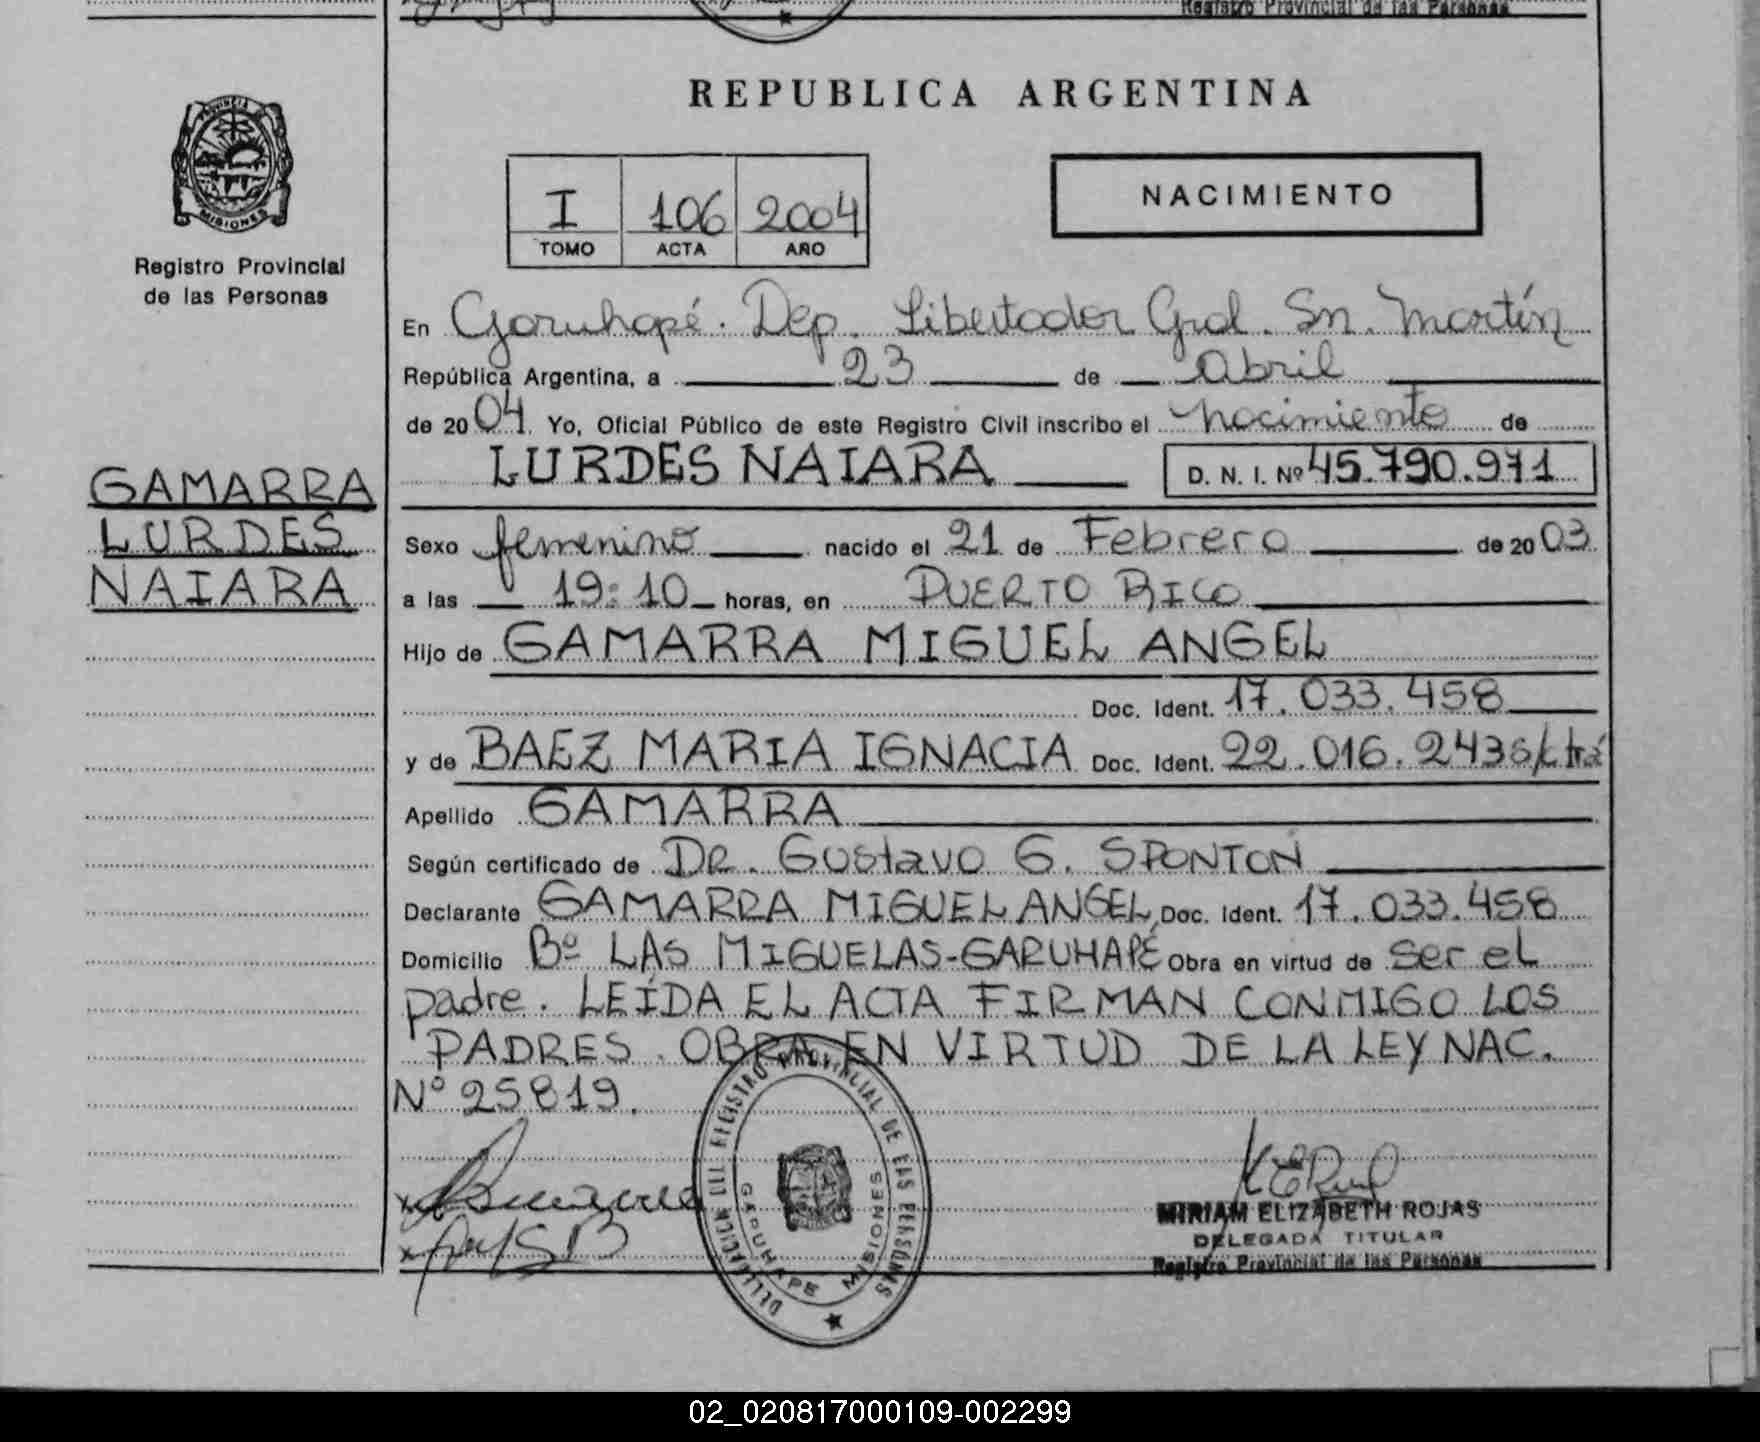 Registro Provincial de las Personas
REPUBLICA ARGENTINA
PROVINCIA
MISIONES
Registro Provincial
de las Personas
GAMARRA
LURDES
NAIARA
I 106 2004
TOMO ACTA AÑO
NACIMIENTO
En Garuhapé. Dep. Libertador Gral. Sn. Martín
República Argentina, a 23 de Abril
de 2004. Yo, Oficial Público de este Registro Civil inscribo el nacimiento de
LURDES NAIARA D. N. I. Nº 45.790.971
Sexo femenino nacido el 21 de Febrero de 2003.
a las 19:10 horas, en PUERTO RICO
Hijo de GAMARRA MIGUEL ANGEL
Doc. Ident. 17.033.458
y de BAEZ MARIA IGNACIA Doc. Ident. 22.016.243
Apellido GAMARRA
Según certificado de DR. GUSTAVO G. SPONTON
Declarante GAMARRA MIGUEL ANGEL Doc. Ident. 17.033.458
Domicilio Bº LAS MIGUELAS-GARUHAPÉ Obra en virtud de ser el
padre. LEÍDA EL ACTA FIRMAN CONMIGO LOS
PADRES. OBRA EN VIRTUD DE LA LEY NAC.
Nº 25819.
DELEGACION DEL REGISTRO PROVINCIAL DE LAS PERSONAS
GARUHAPE MISIONES
MIRIAM ELIZABETH ROJAS
DELEGADA TITULAR
Registro Provincial de las Personas
02_020817000109-002299